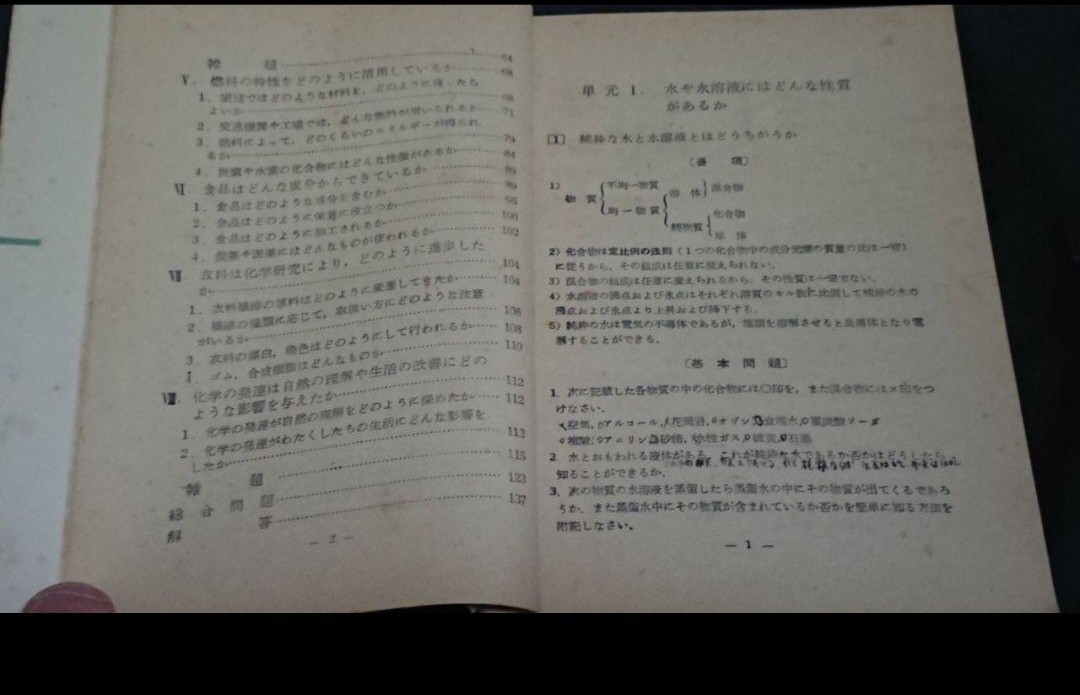 雑　題 64
V. 燃料の特性をどのように活用しているか 68
1. 家庭ではどのような材料を，どのように使ったら
よいか 68
2. 交通機関や工場では，どんな燃料が用いられるか 71
3. 燃料によって，どのくらいのエネルギーが得られ
るか 79
4. 炭素や水素の化合物にはどんな性質があるか 84
Ⅵ 食品はどんな成分からできているか 89
1. 食品はどのような成分を含むか 89
2. 食品はどのように栄養に役立つか 95
3. 食品はどのように加工されるか 100
4. 農薬や医薬にはどんなものが使われるか 102
Ⅶ 衣料は化学研究により，どのように進歩した
か 104
1. 衣料繊維の原料はどのように変遷してきたか 104
2. 繊維の種類に応じて，取扱い方にどのような注意
がいるか 106
3. 衣料の漂白，染色はどのようにして行われるか 108
4. ゴム，合成樹脂はどんなものか 110
Ⅷ. 化学の発達は自然の理解や生活の改善にどの
ような影響を与えたか 112
1. 化学の発達が自然の理解をどのように深めたか 112
2. 化学の発達がわたくしたちの生活にどんな影響を
したか 113
雑　題 115
総合問題 123
解　答 137
— 2 —
単元1. 水や水溶液にはどんな性質
があるか
[1] 純粋な水と水溶液とはどうちがうか
〔要　項〕
1)
物質 不均一物質 均一物質 溶体 純物質 混合物 化合物 単体
2) 化合物は定比例の法則（1つの化合物中の成分元素の質量の比は一定）
に従うから，その組成は任意に変えられない．
3) 混合物の組成は任意に変えられるから，その性質は一定でない．
4) 水溶液の沸点および氷点はそれぞれ溶質のモル数に比例して純粋の水の
沸点および氷点より上昇および降下する．
5) 純粋の水は電気の不導体であるが，塩類を溶解させると良導体となり電
解することができる．
〔基本問題〕
1. 次に記載した各物質の中の化合物には○印を，また混合物には×印をつ
けなさい．
×空気，○アルコール，×花崗岩，○オゾン，食塩水，○重炭酸ソーダ
○塩酸，○アニリン，砂糖，水性ガス，○硫黄，○石墨
2. 水とおもわれる液体がある．これが純粋な水であるか否かはどうしたら
知ることができるか．
3. 次の物質の水溶液を蒸留したら蒸留水の中にその物質が出てくるであろ
うか．また蒸留水中にその物質が含まれているか否かを簡単に知る方法を
附記しなさい．
— 1 —